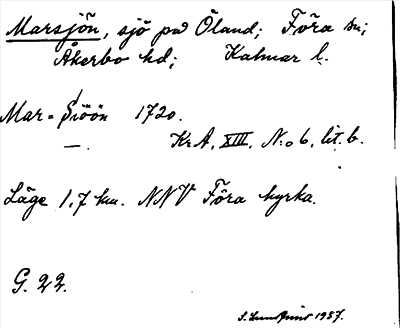 Marsjön, sjö på Öland; Föra sn;
Åkerbo hd; Kalmar l.
Mar=Siöön 1720.
—. KrA, XIII, N:o 6, lit. b.
Läge 1,7 km. NNV Föra kyrka.
G. 22.
S. Lundquist 1957.